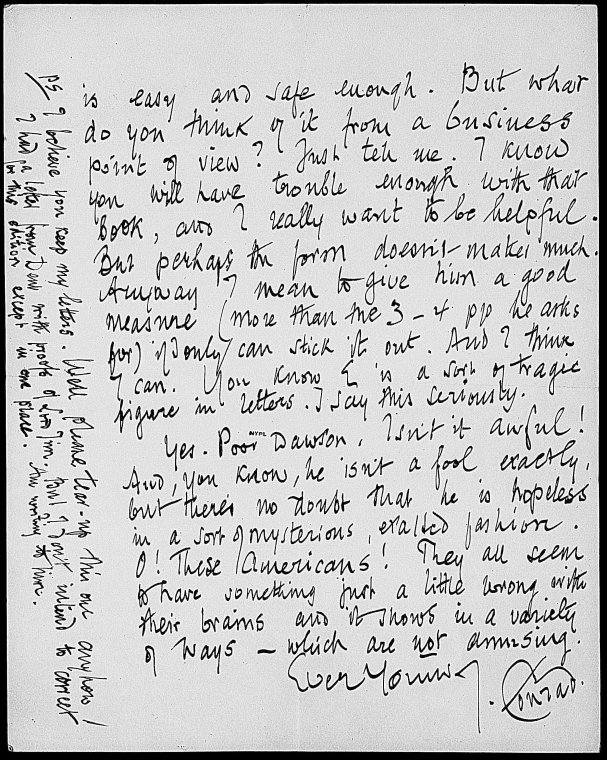 is easy and safe enough. But what
do you think of it from a business
point of view? Just tell me. I know
you will have trouble enough with that
Book, and I really want to be helpful.
But perhaps the form doesn't makes much.
Anyway I mean to give him a good
measure (more than the 3-4 pp he asks
for) if I only can stick it out. And I think
I can. You know E is a sort of tragic
figure in letters. I say this seriously.
Yes. Poor Dawson. Isn't it awful!
NYPL
And, you know, he isn't a fool exactly,
but there's no doubt that he is hopeless
in a sort of mysterious, exalted fashion.
O! These Americans! They all seem
to have something just a little wrong with
their brains and it shows in a variety
of ways — which are not amusing.
Ever Yours
J. Conrad.
PS I believe you keep my letters. Well please tear-up this one anyhow!
I had a letter from Dent with proofs of Lord Jim. But I don't intend to correct
for this edition except in one place. Am writing to him.